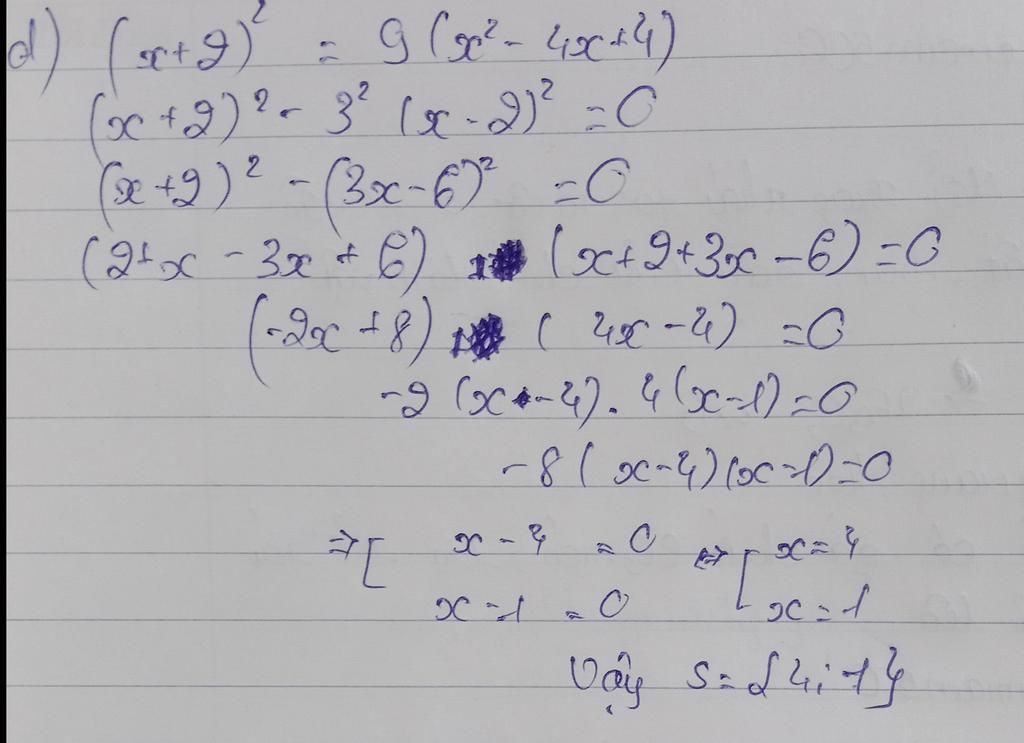 d) (x+2)² = 9(x² - 4x+4)
(x+2)² - 3² (x-2)² = 0
(x+2)² - (3x-6)² = 0
(2+x - 3x + 6) (x+2+3x-6) = 0
(-2x+8) (4x-4) = 0
-2(x-4).4(x-1)=0
-8(x-4)(x-1)=0
⇒[ x-4 = 0 ⇔[ x=4
x-1 = 0 x=1
Vậy S={4;1}